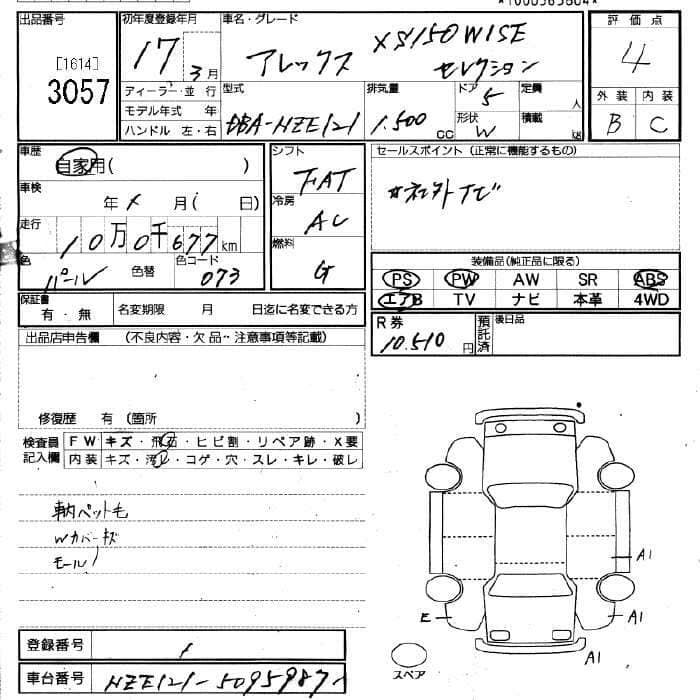 出品番号
[1614]
3057
初年度登録年月
17 3月
ディーラー・並 行
モデル年式 年
ハンドル 左・右
車名・グレード
アレックス XS150 WISE
セレクション
型式
DBA-HZE121
排気量
1.500 CC
ドア 5
形状 W
定員 人
積載
評 価 点
4
外 装 内 装
B C
車歴
自家用( )
車検
年 月 ( 日)
走行
10万0千677km
色
パール
色替
色コード
073
シフト
FAT
冷房
AC
燃料
G
セールスポイント (正常に機能するもの)
装備品(純正品に限る)
PS PW AW SR ABS
エアB TV ナビ 本革 4WD
保証書
有・無
名変期限 月 日迄に名変できる方
R 券
10.510円
預託済
後日品
出品店申告欄 (不良内容・欠品・注意事項等記載)
修復歴 有 (箇所 )
検査員
記入欄
FW キズ・飛石・ヒビ割・リペア跡・X要
内装 キズ・汚レ・コゲ・穴・スレ・キレ・破レ
車内ペット毛
Wカバーキズ
モール
A1
E
A1
A1
スペア
登録番号
車台番号
HZE121-5095987